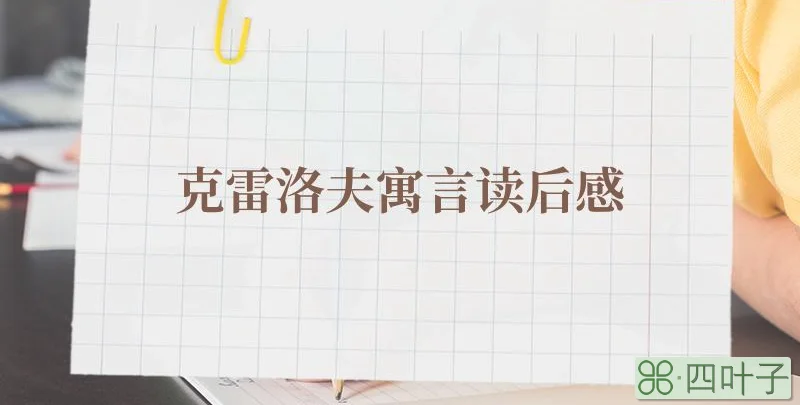 克雷洛夫寓言读后感
四叶子